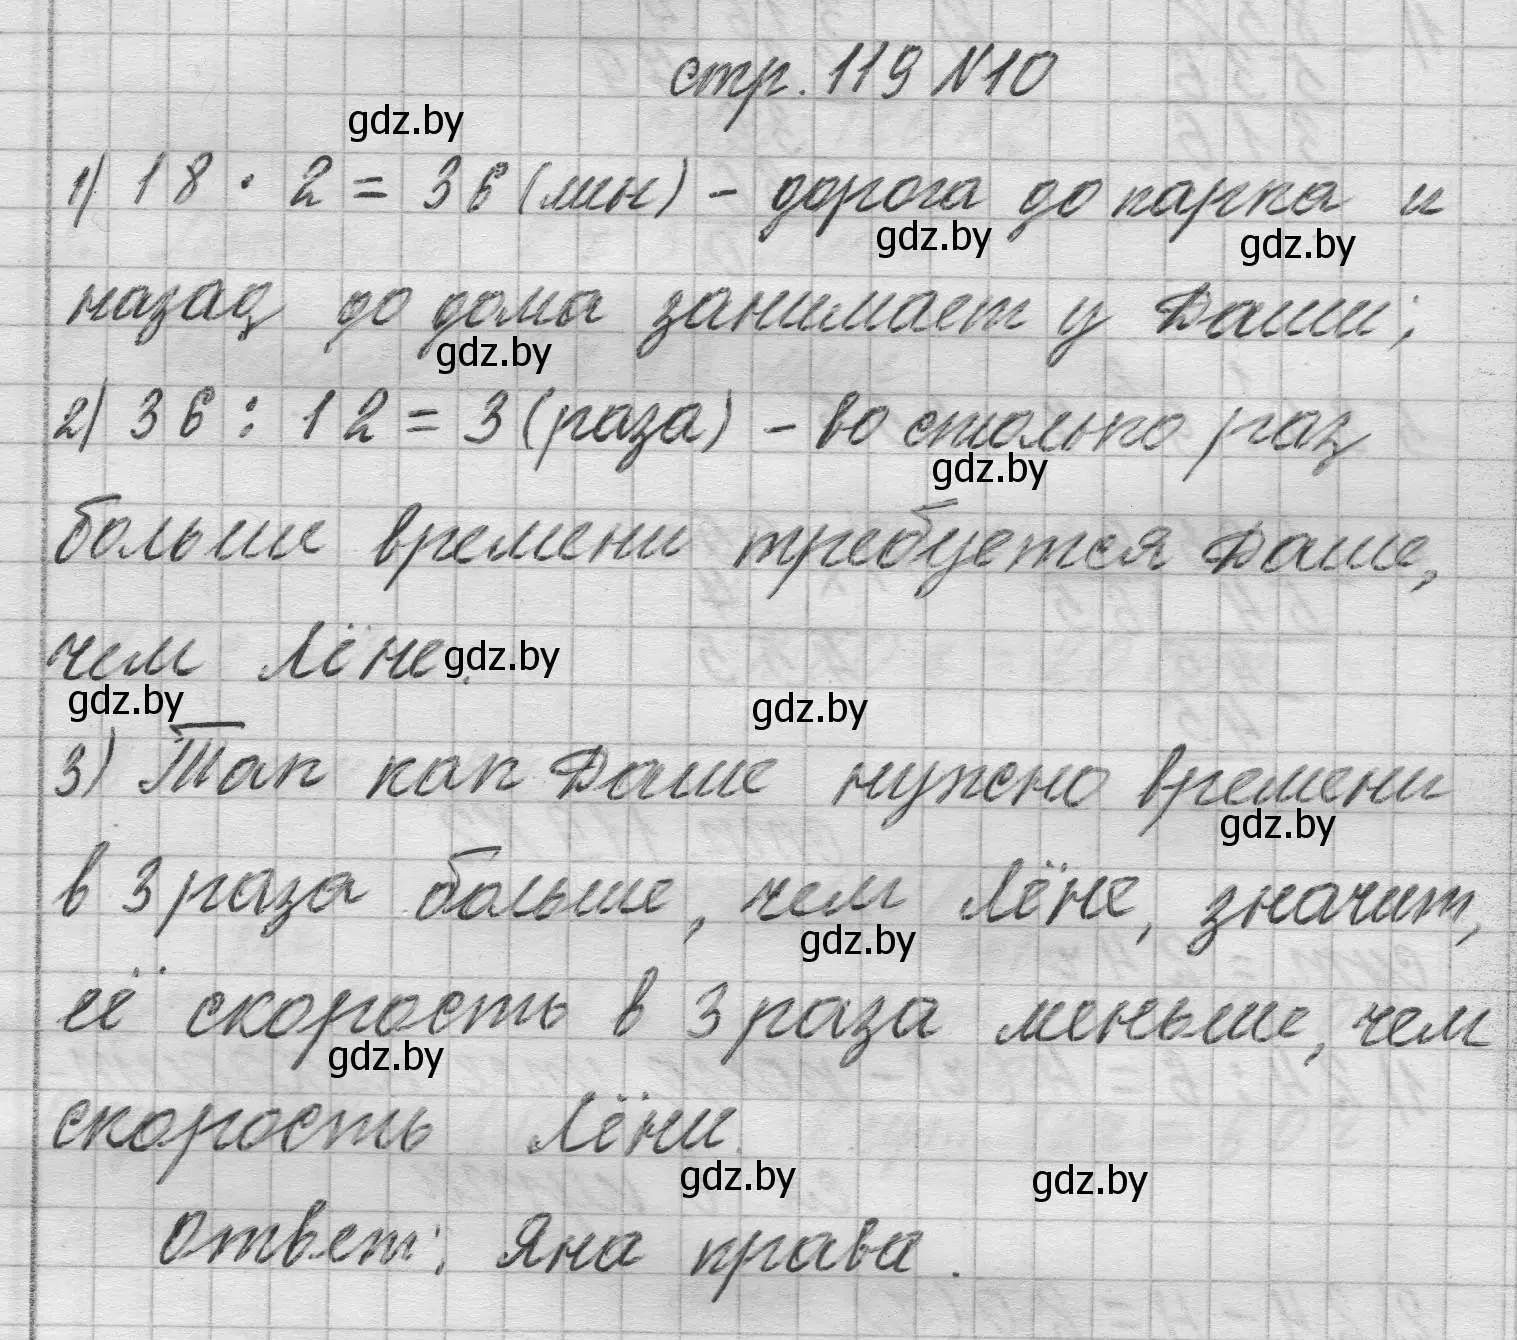 стр. 119 №10
gdz.by
1) 18 · 2 = 36 (мин) - дорога до парка и
gdz.by gdz.by
назад до дома занимает у Даши;
gdz.by
2) 36 : 12 = 3 (раза) - во столько раз
gdz.by
больше времени требуется Даше,
чем Лёне.
gdz.by
gdz.by gdz.by
3) Так как Даше нужно времени
gdz.by
в 3 раза больше, чем Лёне, значит,
gdz.by
её скорость в 3 раза меньше, чем
gdz.by
скорость Лёни.
gdz.by gdz.by
Ответ: Яна права.